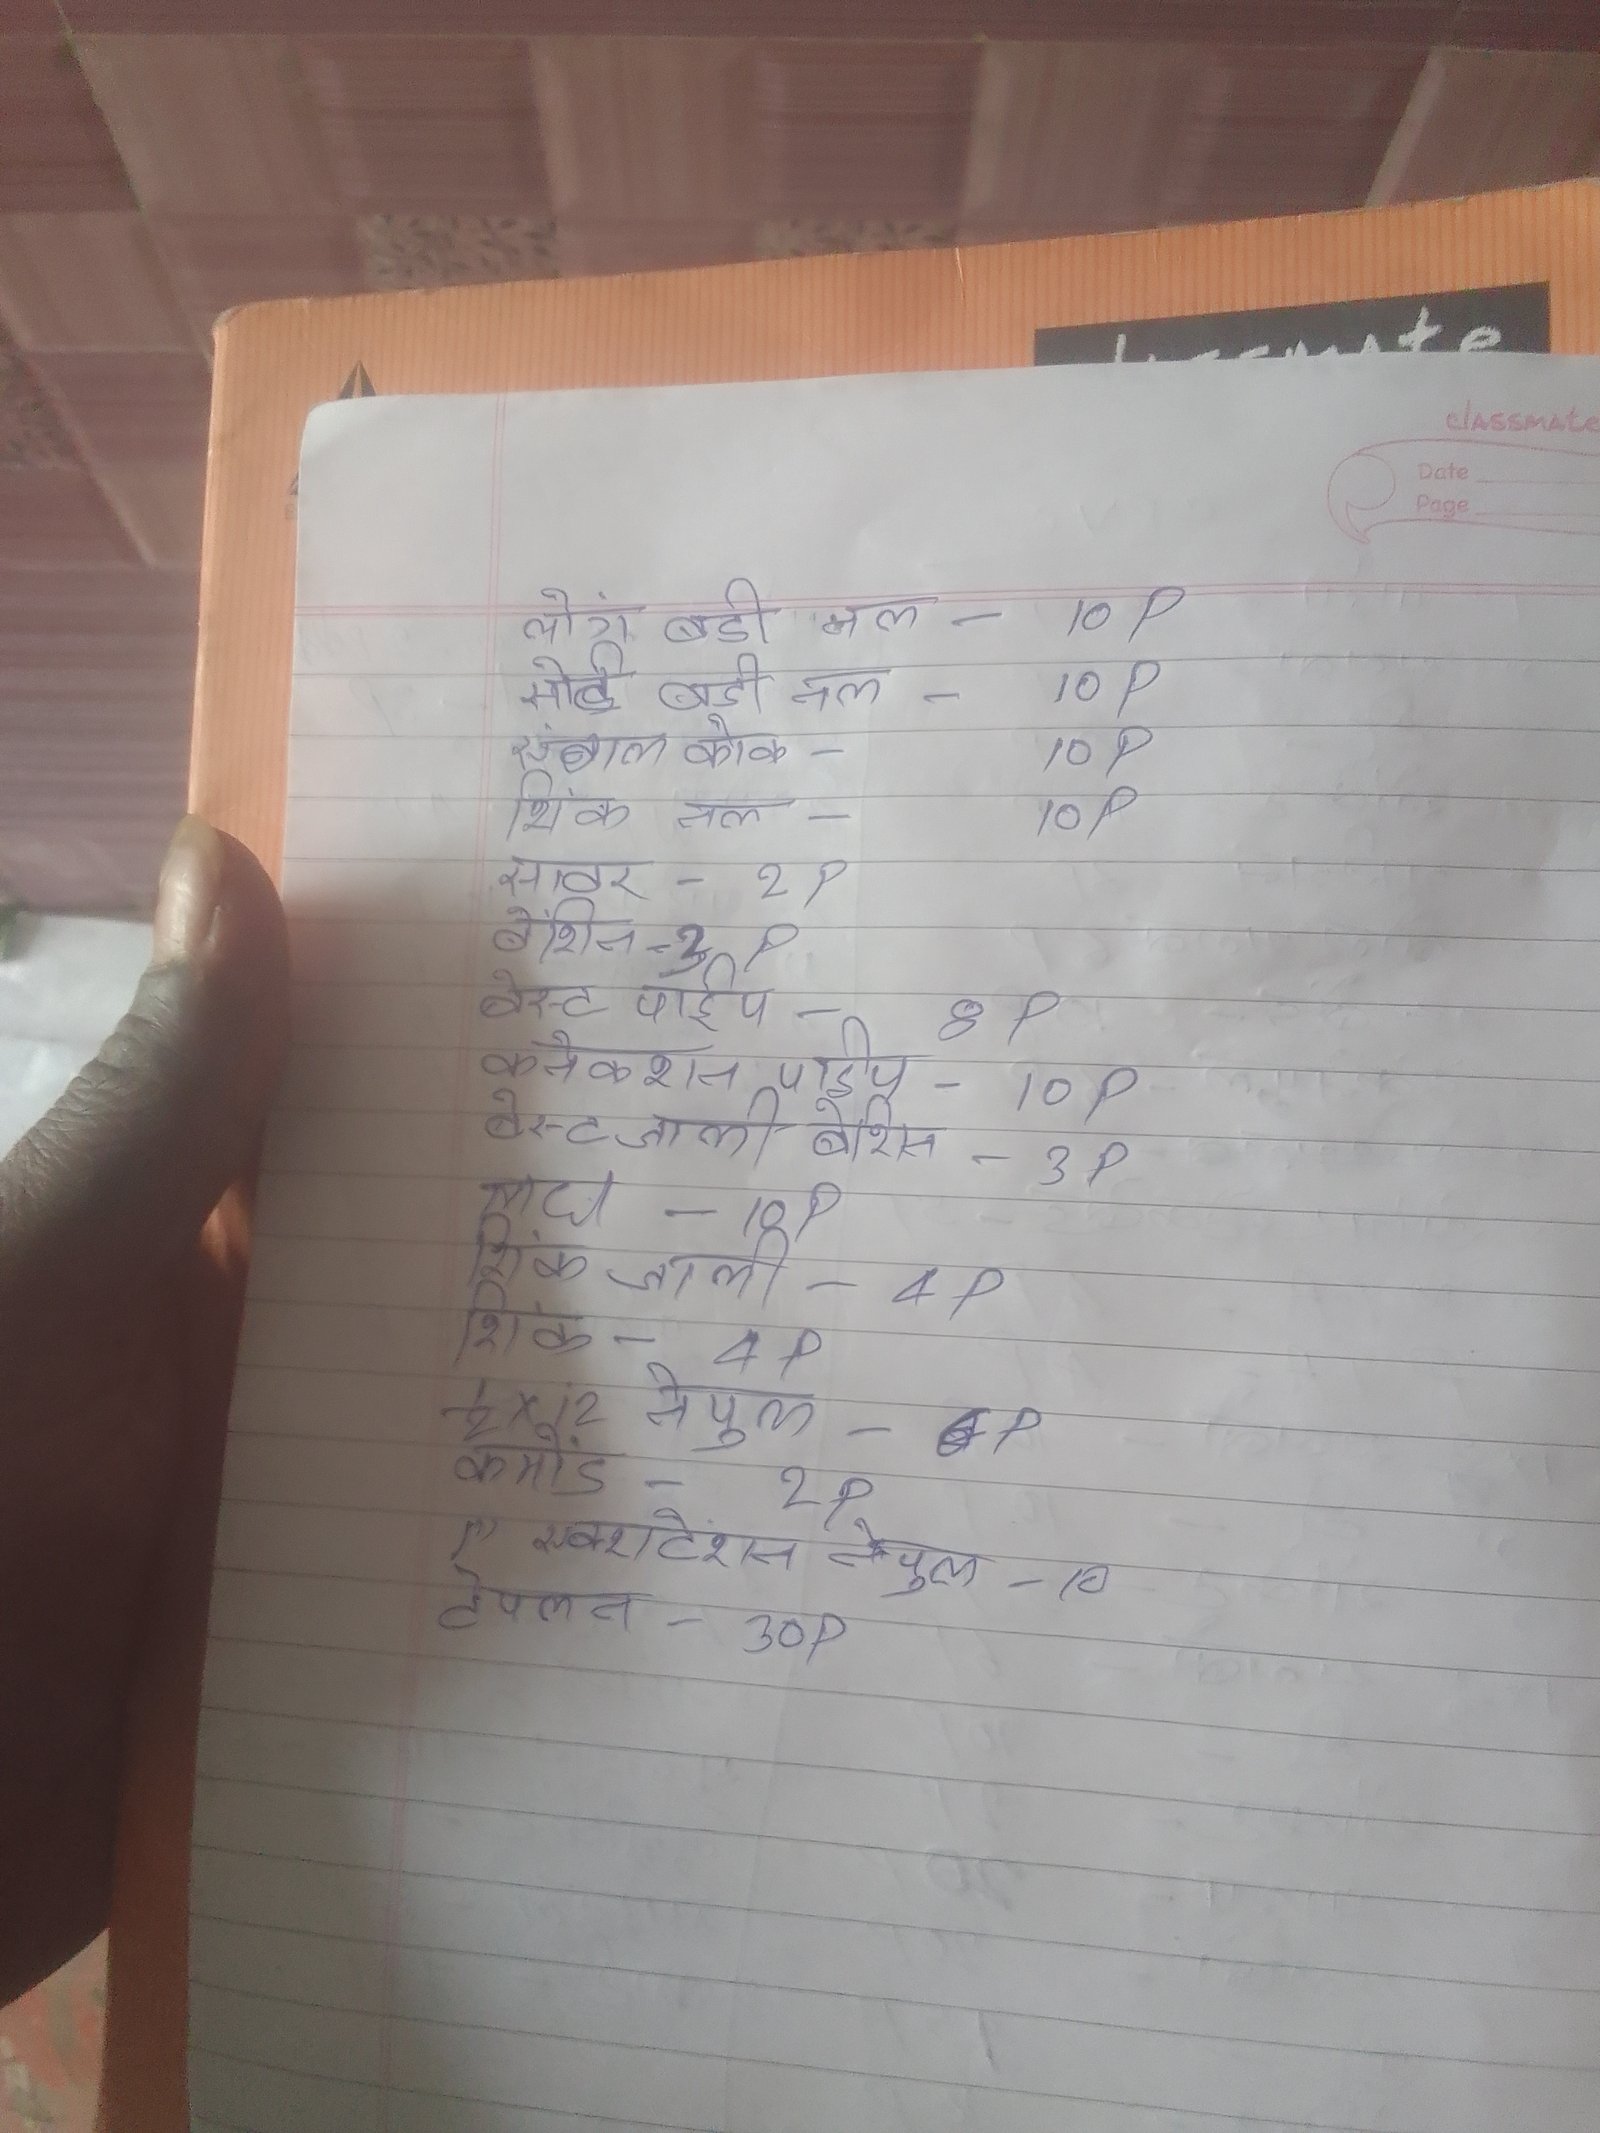 classmate
classmate
Date
Page
लोंग बडी नल - 10 P
बडी नल - 10 P
कोक - 10 P
शिंक नल - 10 P
सावर - 2 P
बेंशिन - 3 P
वेस्ट पाईप - 8 P
कनेकशन पाईप - 10 P
वेस्ट जाली बेशिन - 3 P
- 10 P
शिंक जाली - 4 P
शिंक - 4 P
नेपुल - P
कमोड - 2 P
1" नेपुल - 10
टेपलन - 30 P